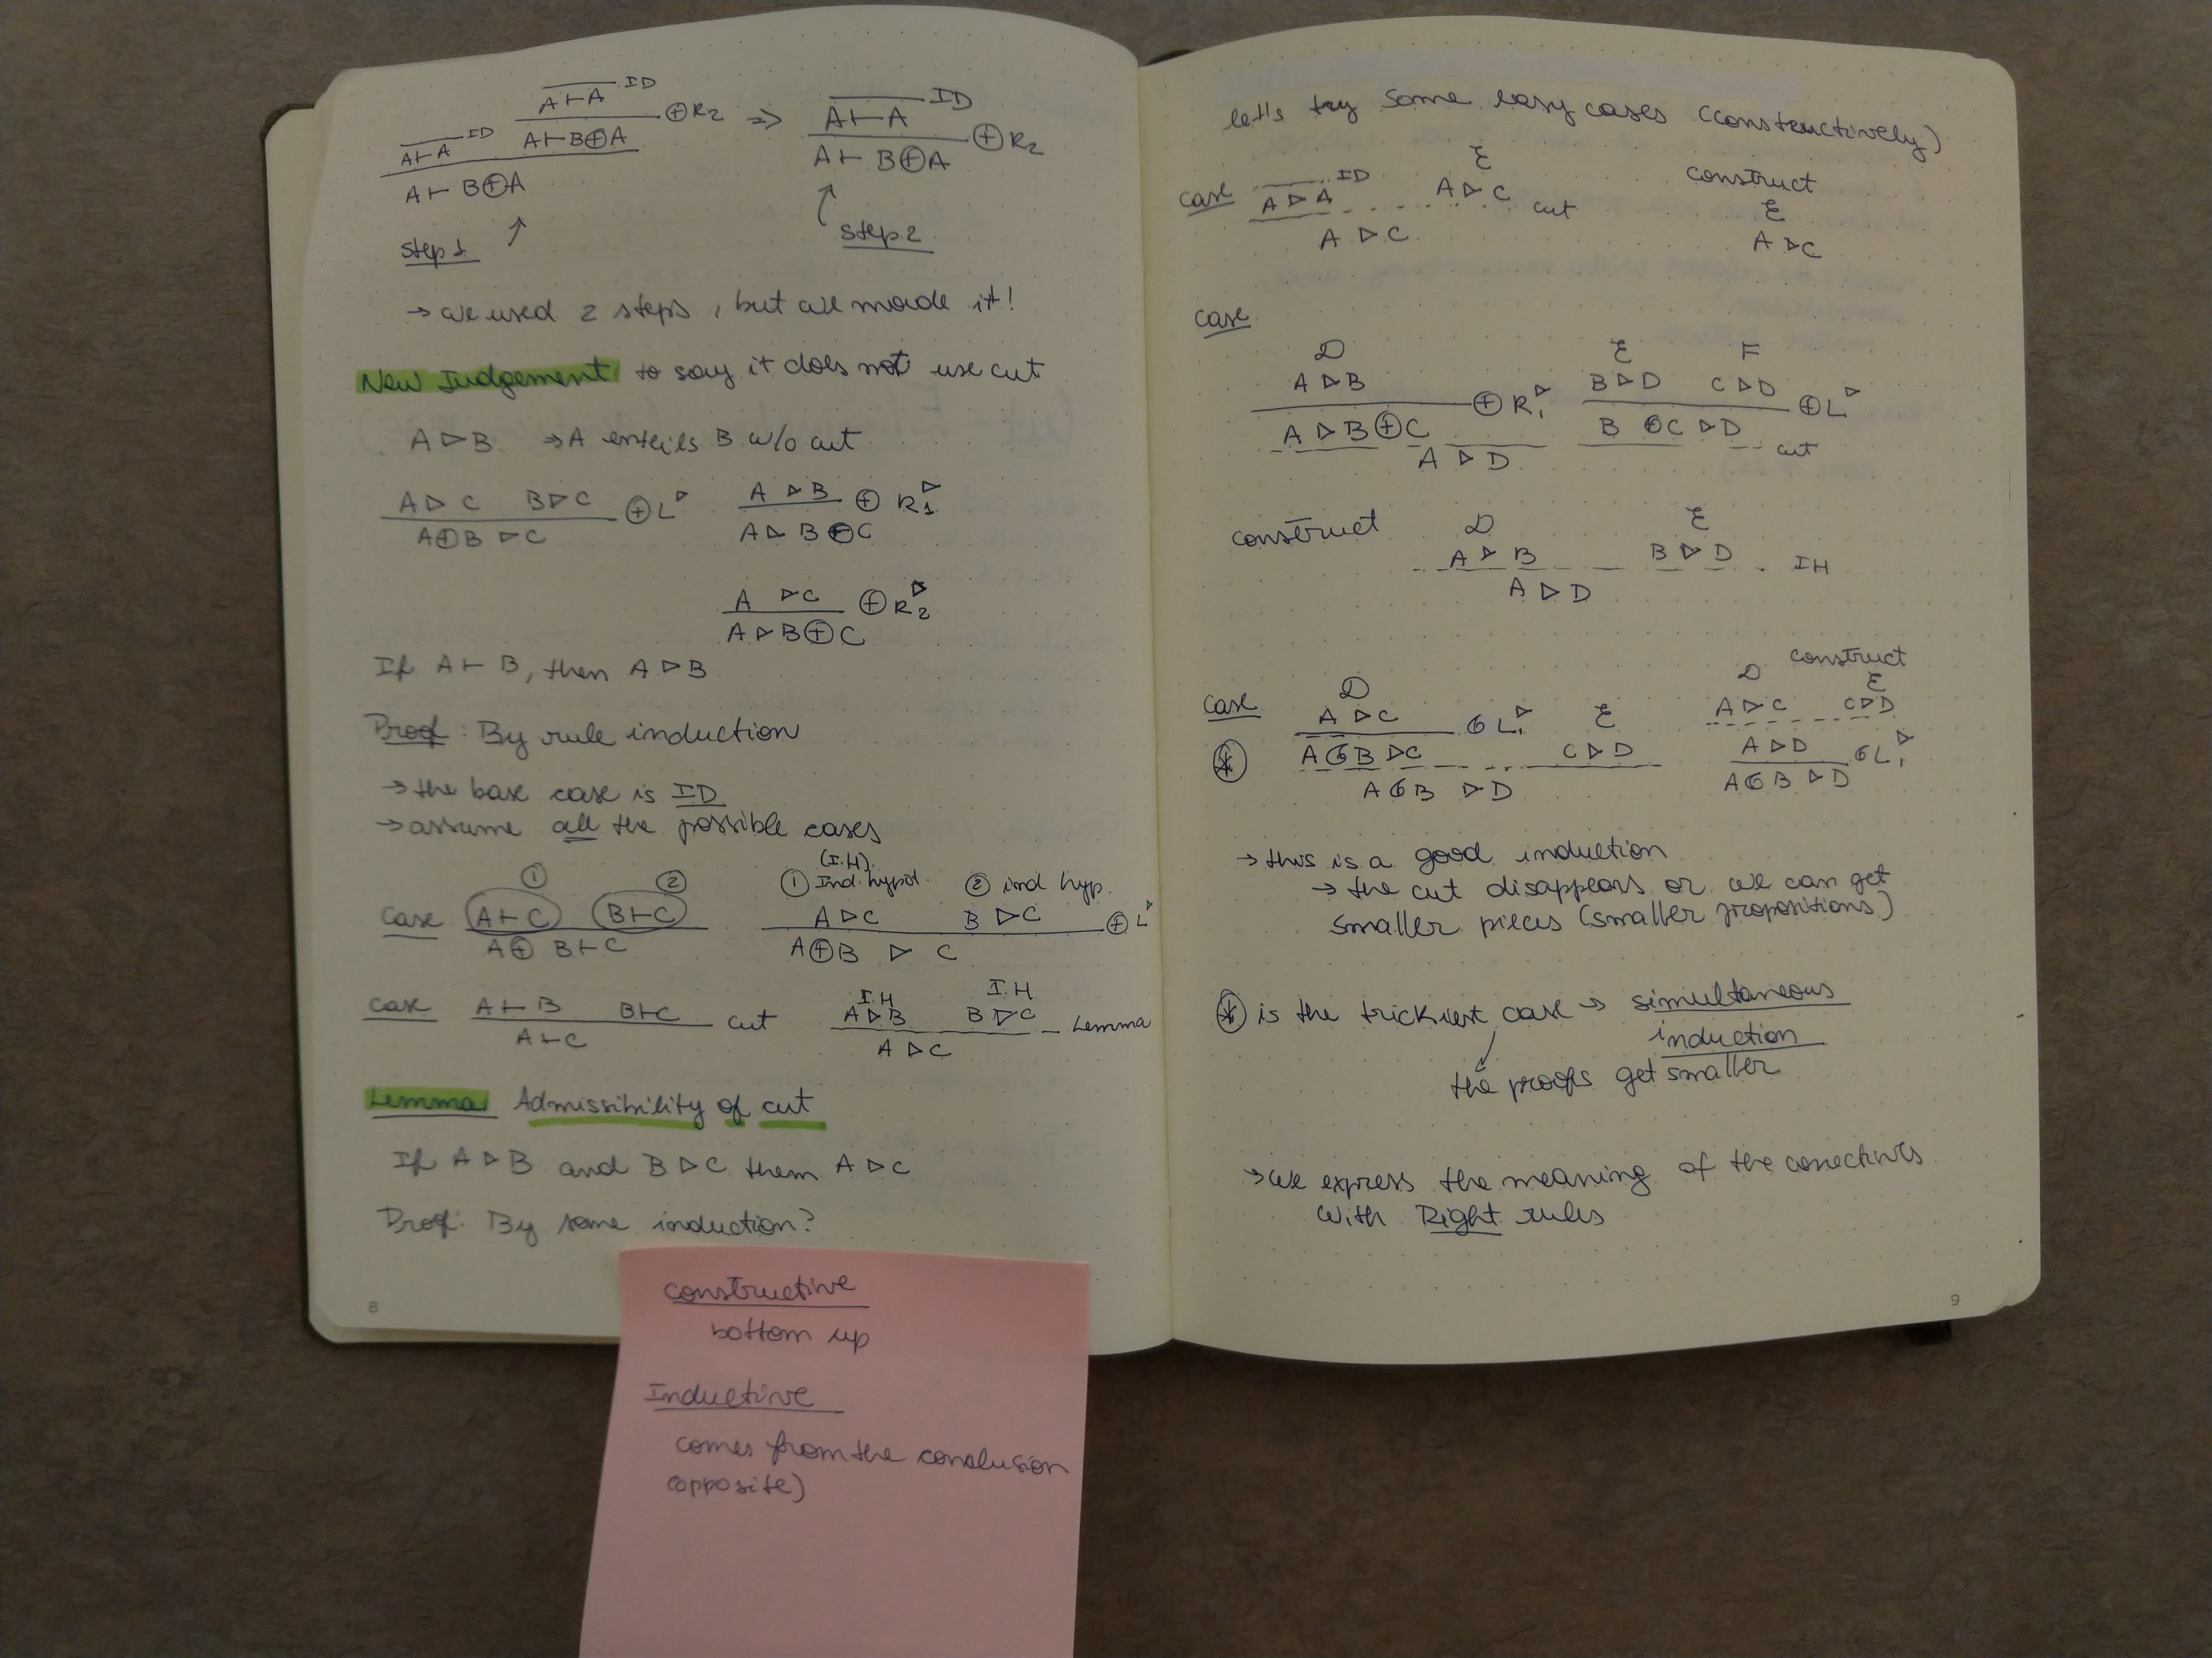 A⊢A ID A⊢A ID
A⊢A ID A⊢B⊕A ⊕R2 ⇒ A⊢A ID
A⊢B⊕A A⊢B⊕A ⊕R2
step 1 ↑ ↑ step 2
→ we used 2 steps, but we made it!
New Judgement to say it does not use cut
A ▷ B → A entails B w/o cut
A ▷ C B ▷ C ⊕L▷ A ▷ B ⊕R1▷
A⊕B ▷ C A ▷ B⊕C
A ▷ C ⊕R2▷
A ▷ B⊕C
If A ⊢ B, then A ▷ B
Proof: By rule induction
→ the base case is ID
→ assume all the possible cases
(I.H)
① ② ① Ind. hypot ② ind hyp.
Case A⊢C B⊢C A ▷ C B ▷ C ⊕L▷
A⊕B⊢C A⊕B ▷ C
I.H I.H
Case A⊢B B⊢C cut A ▷ B B ▷ C Lemma
A⊢C A ▷ C
Lemma Admissibility of cut
If A ▷ B and B ▷ C them A ▷ C
Prof: By some induction?
8
constructive
bottom up
Inductive
comes from the conclusion
(opposite)
let's try some easy cases (constructively)
ID E construct
case A ▷ A A ▷ C cut E
A ▷ C A ▷ C
case
D E F
A ▷ B ⊕R1▷ B ▷ D C ▷ D ⊕L▷
A ▷ B⊕C B⊕C ▷ D cut
A ▷ D
construct D E
A ▷ B B ▷ D IH
A ▷ D
case D construct
A ▷ C &L1▷ E D E
⊛ A&B ▷ C C ▷ D A ▷ C C ▷ D
A&B ▷ D A ▷ D &L1▷
A&B ▷ D
→ this is a good induction
→ the cut disappears or we can get
smaller pieces (smaller propositions)
⊛ is the trickiest case → simultaneous
induction
the proofs get smaller
→ we express the meaning of the conectives
with Right rules
9